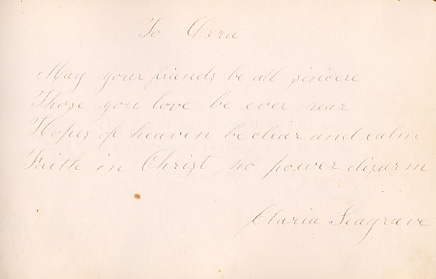 To Ozra
May your friends be all sincere
Those you love be ever near
Hopes of heaven be clear and calm
Faith in Christ, no power disarm
Claria Seagrave